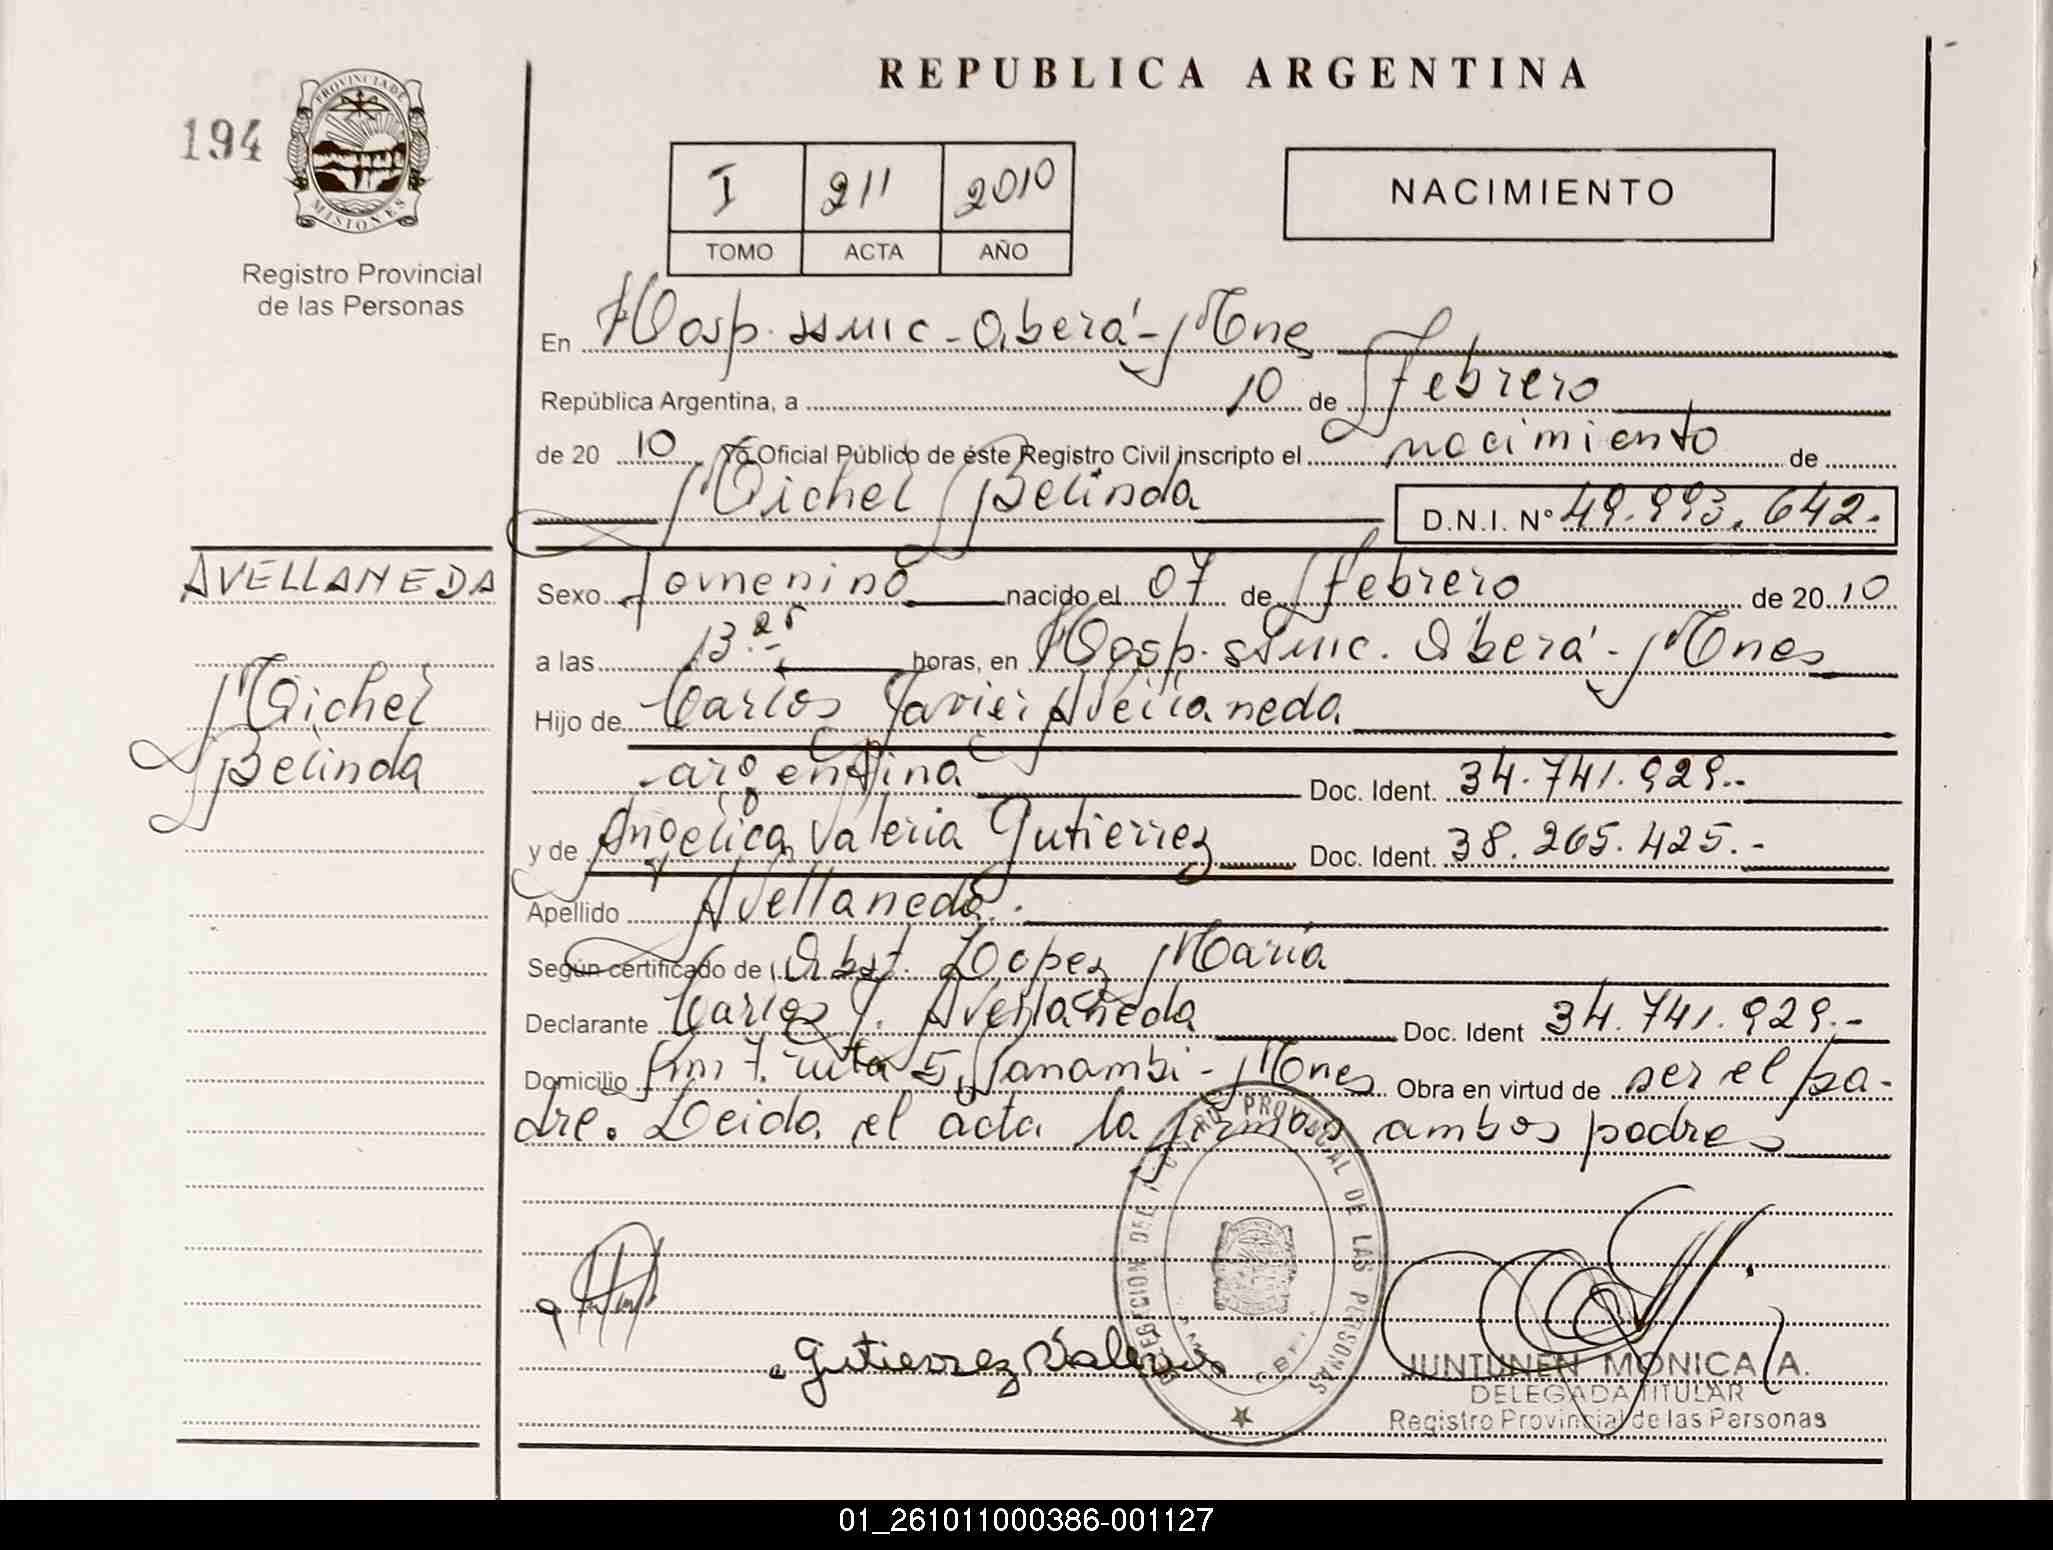 REPUBLICA ARGENTINA
194
PROVINCIA DE
MISIONES
Registro Provincial
de las Personas
I 211 2010
TOMO ACTA AÑO
NACIMIENTO
En Hosp. ssmic - Oberá - Mnes
República Argentina, a 10 de Febrero
de 20 10 Yo Oficial Público de éste Registro Civil inscripto el nacimiento de
Michel Belinda
D.N.I. Nº 49.993.642.-
AVELLANEDA
Michel
Belinda
Sexo femenino nacido el 07 de Febrero de 20 10
a las 13.25 horas, en Hosp. ssmic. Oberá - Mnes
Hijo de Carlos Javier Avellaneda
argentina Doc. Ident. 34.741.929.-
y de Angelica Valeria Gutierrez Doc. Ident. 38.265.425.-
Apellido Avellaneda.
Según certificado de Obst. Lopez María
Declarante Carlos J. Avellaneda Doc. Ident 34.741.929.-
Domicilio Km 7. ruta 5, Panambi - Mnes Obra en virtud de ser el pa-
dre. Leida el acta la firman ambos padres
DELEGACION DEL REGISTRO PROVINCIAL DE LAS PERSONAS
Gutierrez Valeria
JUNTUNEN MONICA A.
DELEGADA TITULAR
Registro Provincial de las Personas
01_261011000386-001127